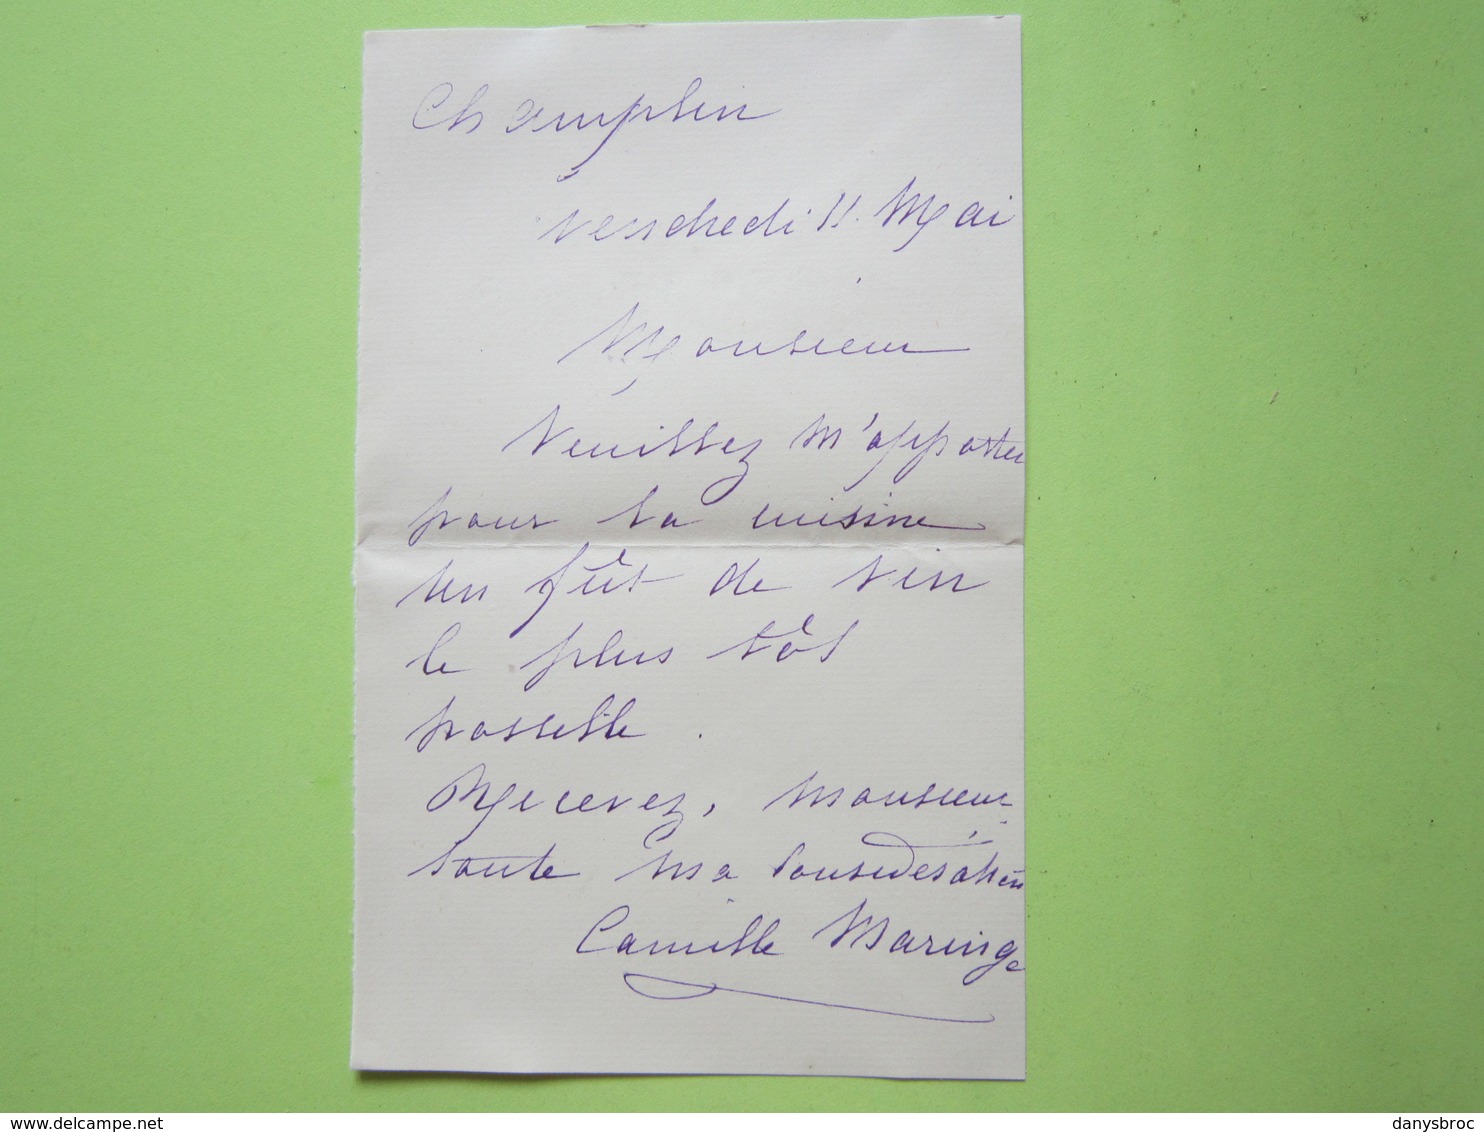 Champlin
Vendredi 11 Mai
Monsieur
Veuillez m'apporter
pour la cuisine
un fût de vin
le plus tôt
possible.
Recevez, Monsieur
toute ma Considération
Camille Maringe
delcampe.net
danysbroc